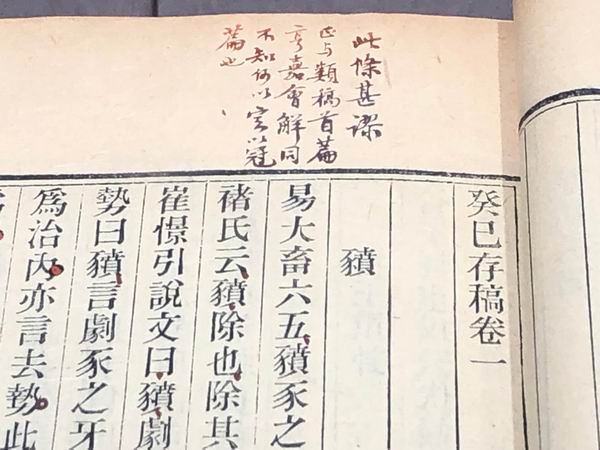 此條甚謬
正与類稿首篇
亨嘉會解同
不知何以以冠
篇也
癸巳存稿卷一
豶
易大畜六五豶豕之
褚氏云豶除也除其
崔憬引說文曰豶劇
勢曰豶言劇豕之牙
爲治內亦言去勢此